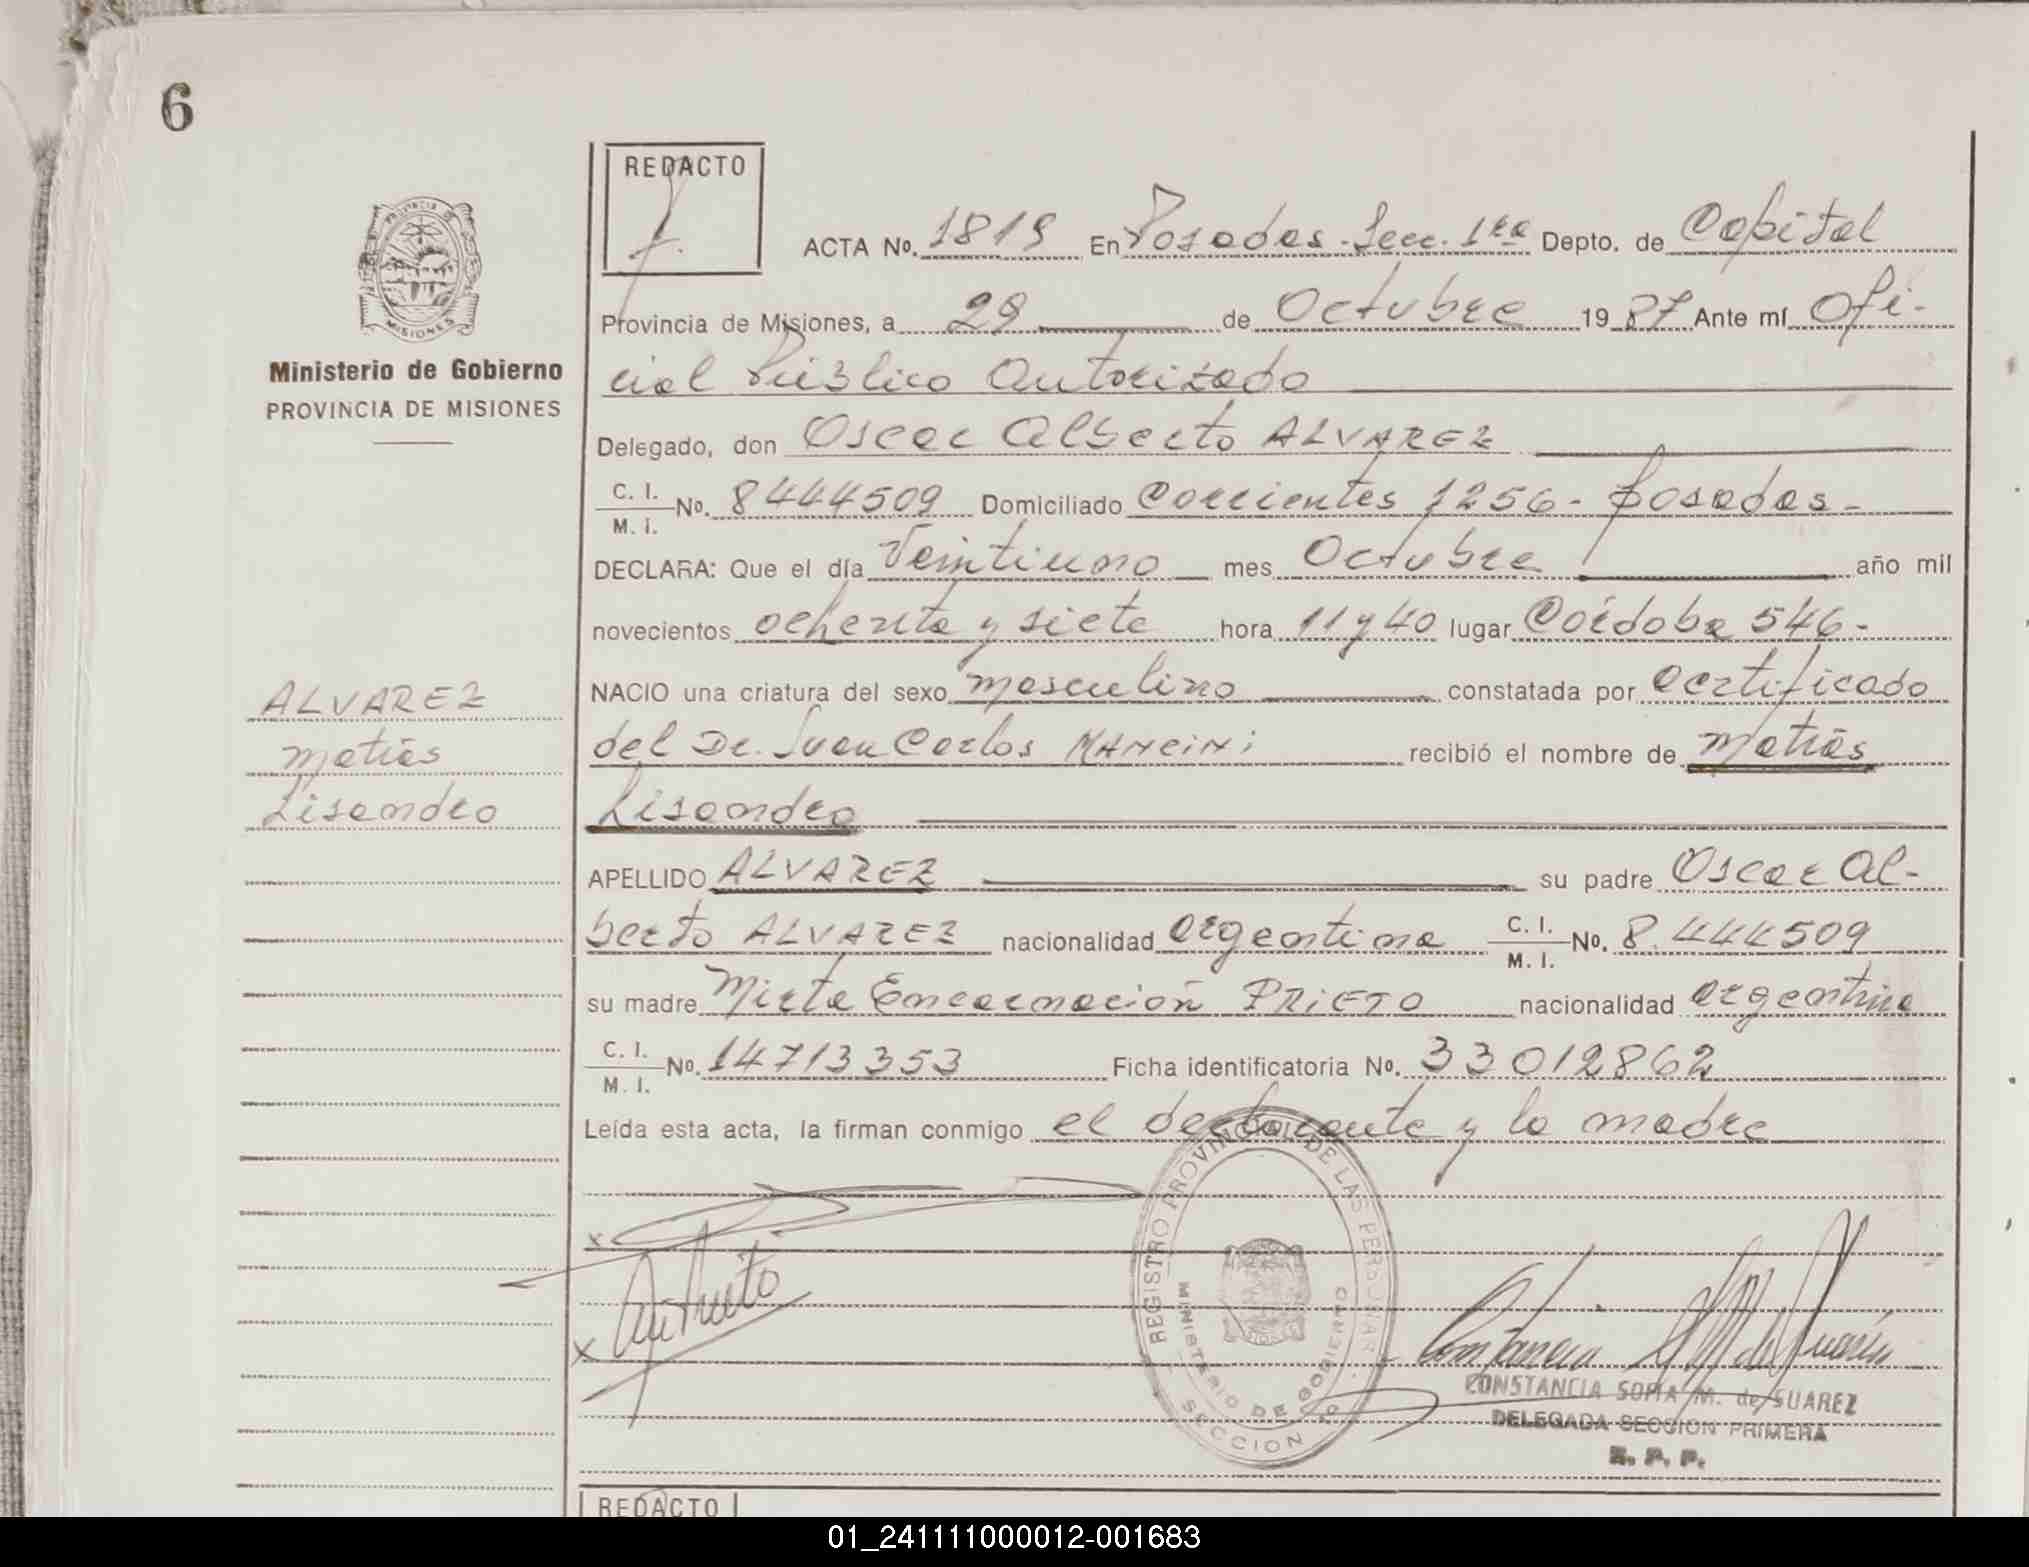 6
REDACTO
ACTA No. 1819 En Posadas - Secc. 1ra Depto. de Capital
Provincia de Misiones, a 29 de Octubre 1987 Ante mí Ofi-
cial Público Autorizado
Ministerio de Gobierno
PROVINCIA DE MISIONES
Delegado, don Oscar Alberto ALVAREZ
C. I.
M. I. No. 8444509 Domiciliado Corrientes 1256 - Posadas -
DECLARA: Que el día Veintiuno mes Octubre año mil
novecientos ochenta y siete hora 11 y 40 lugar Córdoba 546 -
NACIO una criatura del sexo masculino constatada por Certificado
del Dr. Juan Carlos MANCINI recibió el nombre de Matías
Lisandro
ALVAREZ
Matías
Lisandro
APELLIDO ALVAREZ su padre Oscar Al-
berto ALVAREZ nacionalidad argentina C. I.
M. I. No. 8.444509
su madre Mirta Encarnación PRIETO nacionalidad argentina
C. I.
M. I. No. 14713353 Ficha identificatoria No. 33012862
Leída esta acta, la firman conmigo el declarante y la madre
REGISTRO PROVINCIAL DE LAS PERSONAS
MINISTERIO DE GOBIERNO
SECCION
CONSTANCIA SOFIA M. de SUAREZ
DELEGADA SECCION PRIMERA
R. P. P.
REDACTO
01_241111000012-001683